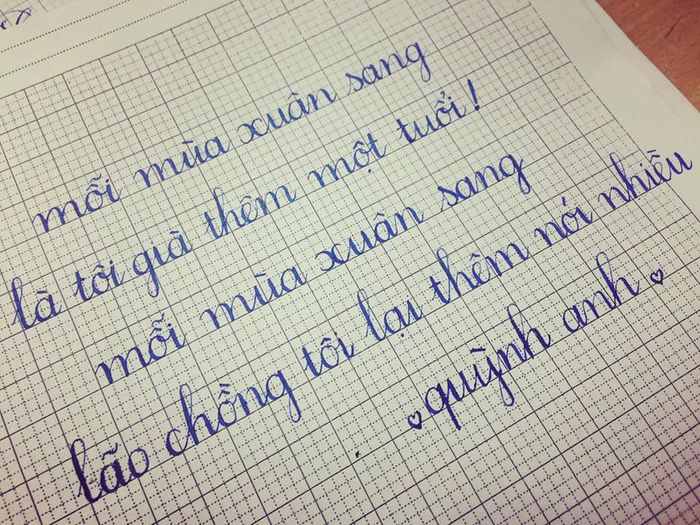 mỗi mùa xuân sang
là tôi già thêm một tuổi!
mỗi mùa xuân sang
lão chồng tôi lại thêm nói nhiều
quỳnh anh